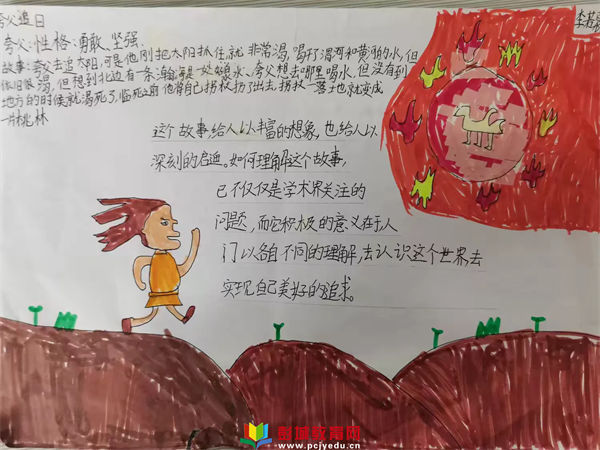 夸父追日
李若
夸父:性格:勇敢、坚强
故事:夸父去追太阳,可是他刚把太阳抓住,就非常渴,喝了渭河和黄河的水,但
依旧很渴,但想到北边有一条瀚海是一处好泉水、夸父想去哪里喝水,但没有到
地方的时候就渴死了,临死之前他将自己拐杖扔了出去,拐杖一落土也就变成
一片桃林
这个故事给人以丰富的想象,也给人以
深刻的启迪。如何理解这个故事,
已不仅仅是学术界关注的
问题,而它积极的意义在于人
门以各自不同的理解,去认识这个世界,去
实现自己美好的追求。
彭城教育网
www.pcjyedu.cn